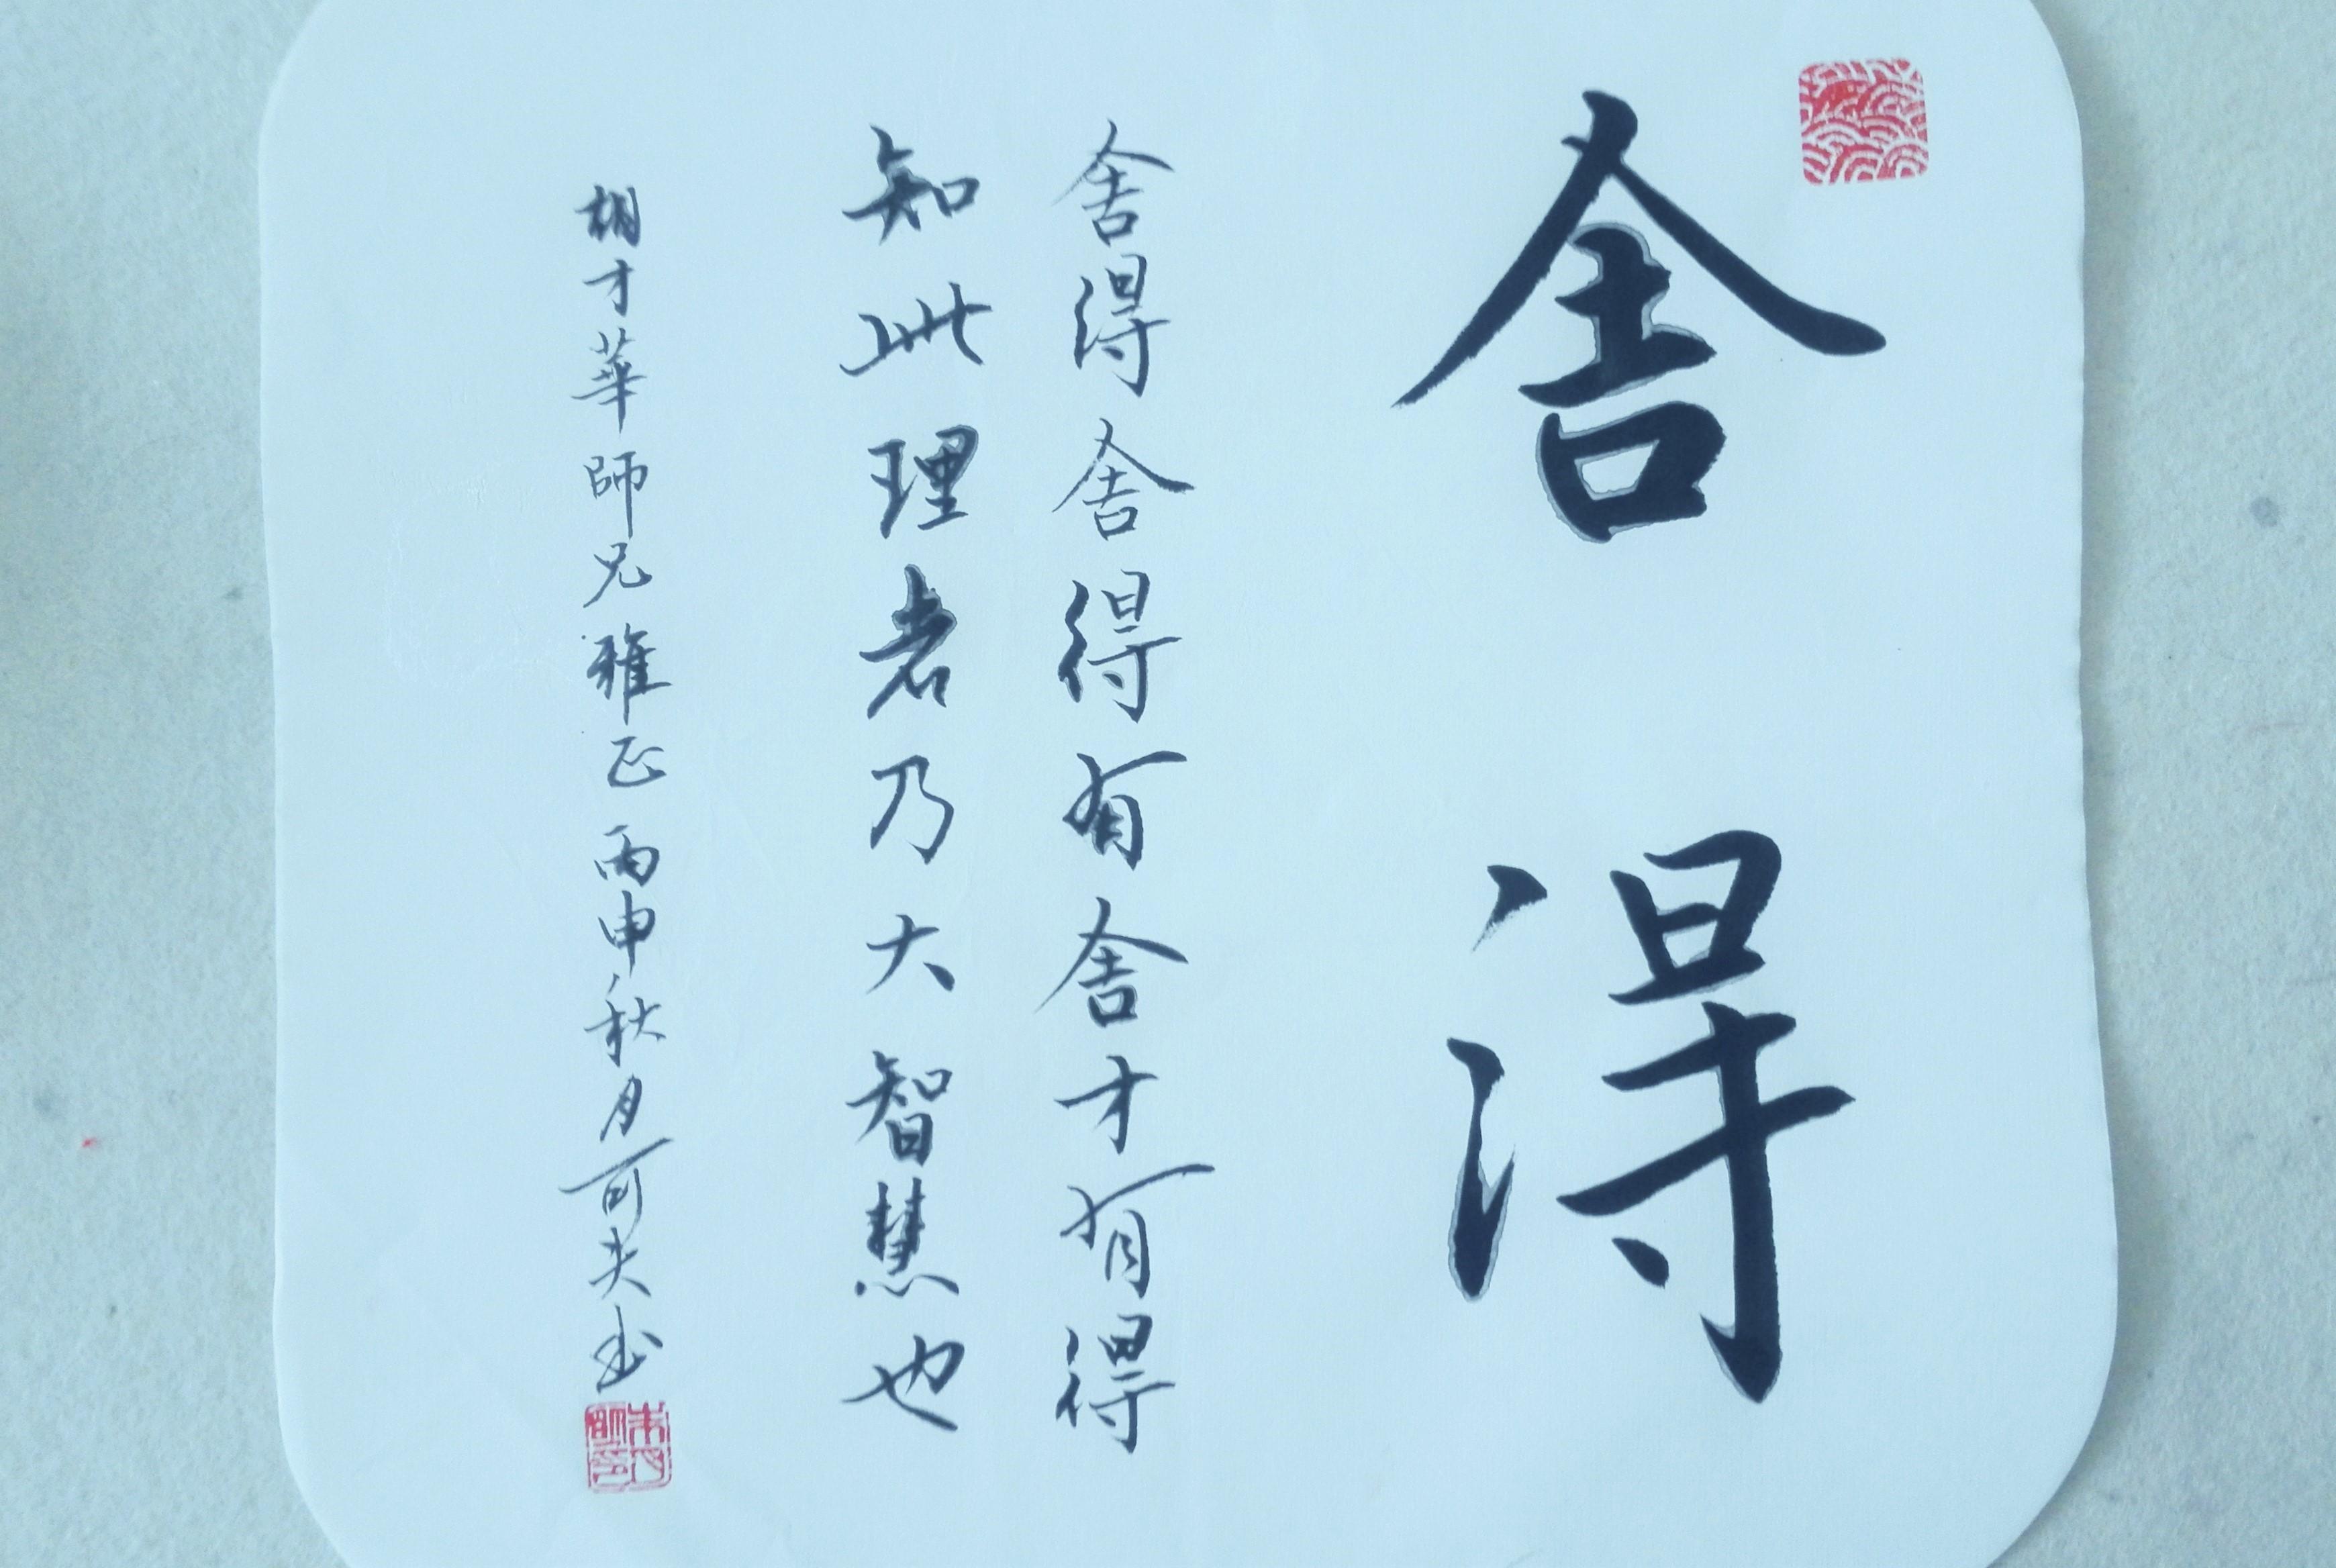 舍得
舍得舍得有舍才有得
知此理者乃大智慧也
胡才華師兄雅正丙申秋月可夫书